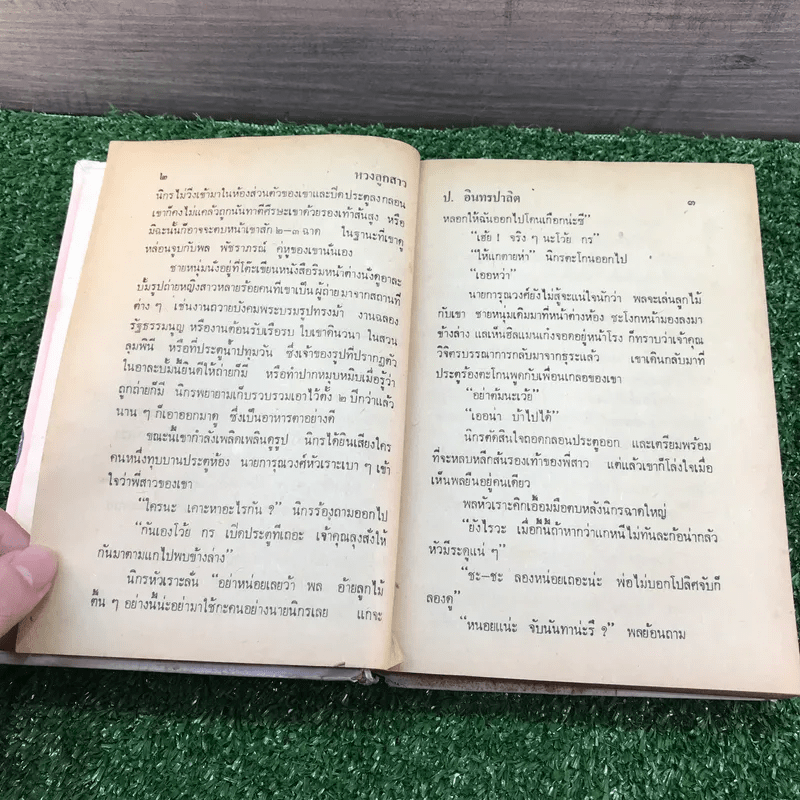 ๒ หวงลูกสาว
นิกรไม่วิ่งเข้ามาในห้องส่วนตัวของเขาและปิดประตูลงกลอน
เขาก็คงไม่แคล้วถูกนันทาตีศีรษะเขาด้วยรองเท้าส้นสูง หรือ
มิฉะนั้นก็อาจจะตบหน้าเขาสัก ๒-๓ ฉาด ในฐานะที่เขาดู
หล่อนจูบกับพล พัชราภรณ์ คู่หูของเขานั่นเอง
ชายหนุ่มนั่งอยู่ที่โต๊ะเขียนหนังสือริมหน้าต่างนั่งดูอาละ
บั้มรูปถ่ายหญิงสาวหลายร้อยคนที่เขาเป็นผู้ถ่ายมาจากสถานที่
ต่าง ๆ เช่นงานถวายบังคมพระบรมรูปทรงม้า งานฉลอง
รัฐธรรมนูญ หรืองานต้อนรับเรือรบ ใบเขาดินวนา ในสวน
ลุมพินี หรือที่ประตูน้ำปทุมวัน ซึ่งเจ้าของรูปที่ปรากฏตัว
ในอาละบั้มนี้ยินดีให้ถ่ายก็มี หรือทำปากหมุบหมิบเมื่อรู้ว่า
ถูกถ่ายก็มี นิกรพยายามเก็บรวบรวมเอาไว้ตั้ง ๒ ปีกว่าแล้ว
นาน ๆ ก็เอาออกมาดู ซึ่งเป็นอาหารตาอย่างดี
ขณะนี้เขากำลังเพลิดเพลินดูรูป นิกรได้ยินเสียงใคร
คนหนึ่งทุบบานประตูห้อง นายการุณวงศ์หัวเราะเบา ๆ เข้า
ใจว่าพี่สาวของเขา
“ใครนะ เคาะหาอะไรกัน ?” นิกรร้องถามออกไป
“กันเองโว้ย กร เปิดประตูทีเถอะ เจ้าคุณลุงสั่งให้
กันมาตามแกไปพบข้างล่าง”
นิกรหัวเราะลั่น “อย่าหน่อยเลยว้า พล อ้ายลูกไม้
ตื้น ๆ อย่างนี้น่ะอย่ามาใช้กะคนอย่างนายนิกรเลย แกจะ
ป. อินทรปาลิต ๓
หลอกให้ฉันออกไปโดนเกือกน่ะซี”
“เฮ้ย ! จริง ๆ นะโว้ย กร”
“ให้แกตายห่า” นิกรตะโกนออกไป
“เออหว่า”
นายการุณวงศ์ยังไม่สู้จะแน่ใจนักว่า พลจะเล่นลูกไม้
กับเขา ชายหนุ่มเดินมาที่หน้าต่างห้อง ชะโงกหน้ามองลงมา
ข้างล่าง แลเห็นฮิลแมนเก๋งจอดอยู่หน้าโรง ก็ทราบว่าเจ้าคุณ
วิจิตรบรรณาการกลับมาจากธุระแล้ว เขาเดินกลับมาที่
ประตูร้องตะโกนพูดกับเพื่อนเกลอของเขา
“อย่าต้มนะเว้ย”
“เออน่า บ้าไปได้”
นิกรตัดสินใจถอดกลอนประตูออก และเตรียมพร้อม
ที่จะหลบหลีกส้นรองเท้าของพี่สาว แต่แล้วเขาก็โล่งใจเมื่อ
เห็นพลยืนอยู่คนเดียว
พลหัวเราะคิกเอื้อมมือตบหลังนิกรฉาดใหญ่
“ยังไรวะ เมื่อกี้นี้ถ้าหากว่าแกหนีไม่ทันละก้อน่ากลัว
หัวมีระดูแน่ ๆ”
“ชะ-ชะ ลองหน่อยเถอะน่ะ พ่อไม่บอกโปลิศจับก็
ลองดู”
“หนอยแน่ะ จับนันทาน่ะรึ ?” พลย้อนถาม